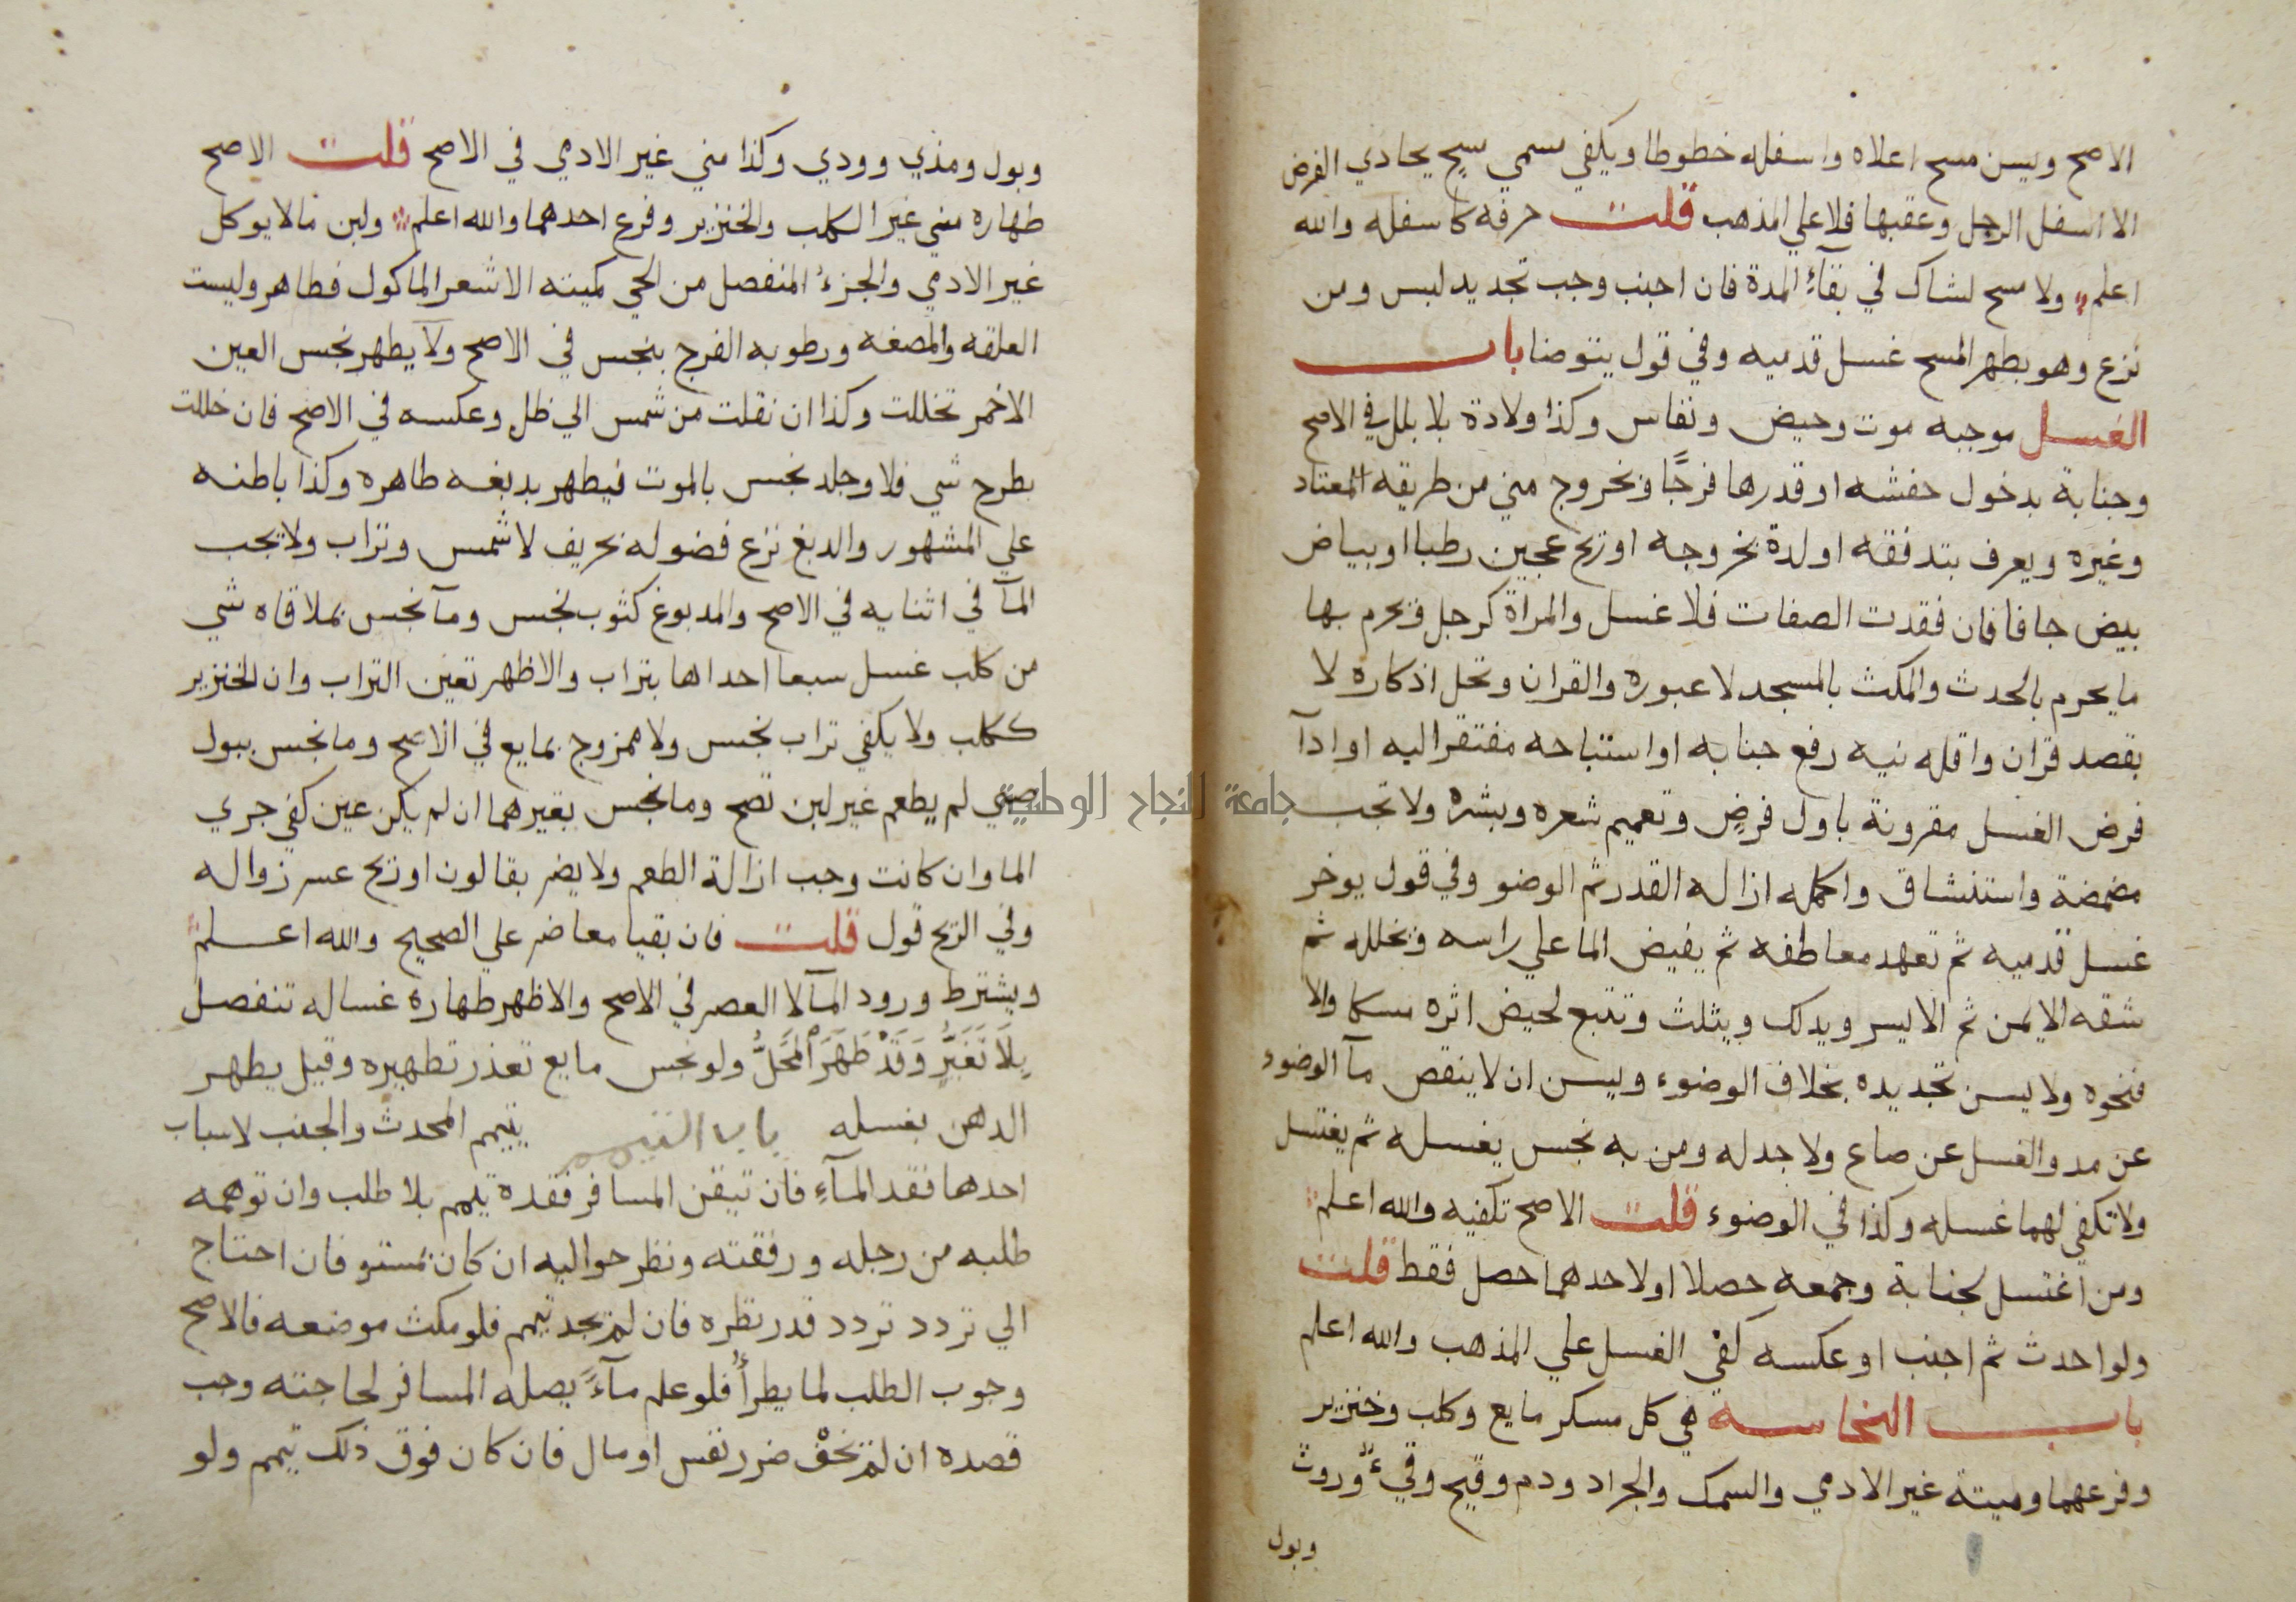 الاصح ويسن مسح اعلاه واسفله خطوطا ويكفي مسمي سح يحادي الفرض
الا اسفل الرجل وعقبها فلا علي المذهب قلت حرفه كاسفله والله
اعلم ولا مسح لشاك في بقآءِ المدة فان اجنب وجب تجديد لبس ومن
نزع وهو بطهر المسح غسل قدميه وفي قول يتوضا باب
الغسل موجبه موت وحيض ونفاس وكذا ولادة بلا بلل في الاصح
وجنابة بدخول حفشه او قدرها فرجًا وبخروج مني من طريقه المعتاد
وغيره ويعرف بتدفقه او لدة بخروجه او ريح عجين رطبا او بياض
بيض جافا فان فقدت الصفات فلا غسل والمراة كرجل ويحرم بها
ما يحرم بالحدث والمكث بالمسجد لا عبوره والقران وتحل اذكاره لا
بقصد قران واقله نيه رفع جنابه او استباحه مفتقر اليه او ادآ
فرض الغسل مقرونة باول فرض وتعميم شعره وبشره ولا تجب
مضمضة واستنشاق واكمله ازاله القدر ثم الوضو وفي قول يوخر
غسل قدميه ثم تعهد معاطفه ثم يفيض الما علي راسه ويخلله ثم
شقه الايمن ثم الايسر ويدلك ويثلث وتتبع لحيض اثره مسكا والا
فنحوه ولا يسن تجديده بخلاف الوضوء ويسن ان لا ينقص مآ الوضوء
عن مد والغسل عن صاع ولا حد له ومن به نجس يغسله ثم يغتسل
ولا تكفي لهما غسله وكذا في الوضوء قلت الاصح تكفيه والله اعلم
ومن اغتسل لجنابة وجمعه حصلا او لاحدهما حصل فقط قلت
ولو احدث ثم اجنب او عكسه كفي الغسل علي المذهب والله اعلم
باب النجاسه هي كل مسكر مايع وكلب وخنزير
وفرعهما وميتة غير الادمي والسمك والجراد ودم وقيح وقيءٌ وروث
وبول
وبول ومذي وودي وكذا مني غير الادمي في الاصح قلت الاصح
طهاره مني غير الكلب والخنزير وفرع احدهما والله اعلم ولبن مالا يوكل
غير الادمي والجزءُ المنفصل من الحي كميتته الا شعر الماكول فطاهر وليست
العلقه والمضغه ورطوبه الفرج بنجس في الاصح ولا يطهر نجس العين
الا خمر تخللت وكذا ان نقلت من شمس الي ظل وعكسه في الاصح فان خللت
بطرح شي فلا وجلد نجس بالموت فيطهر بدبغه ظاهره وكذا باطنه
علي المشهور والدبغ نزع فضوله بحريف لا شمس وتراب ولا يجب
المآ في اثنايه في الاصح والمدبوغ كثوب نجس ومآ نجس بملاقاه شي
من كلب غسل سبعا احداها بتراب والاظهر تعين التراب وان الخنزير
ككلب ولا يكفي تراب نجس ولا ممزوج بمايع في الاصح وما نجس ببول
صبي لم يطعم غير لبن نضح وما نجس بغيرهما ان لم يكن عين كفي جري
الما وان كانت وجب ازالة الطعم ولا يضر بقا لون او ريح عسر زواله
وفي الريح قول قلت فان بقيا معا ضر علي الصحيح والله اعلم
ويشترط ورود المآ لا العصر في الاصح والاظهر طهاره غساله تنفصل
بِلَا تَغَيُّرٍ وَقَدْ طَهَرَ اْلمَحَلُّ ولو نجس مايع تعذر تطهيره وقيل يطهر
الدهن بغسله باب التيمم يتيمم المحدث والجنب لاسباب
احدها فقد المآءِ فان تيقن المسافر فقده تيمم بلا طلب وان توهمه
طلبه من رجله ورفقته ونظر حواليه ان كان بمستو فان احتاج
الي تردد تردد قدر نظره فان لم يجد تيمم فلو مكث موضعه فالاصح
وجوب الطلب لما يطرأُ فلو علم مآءً يصله المسافر لحاجته وجب
قصده ان لم يخفْ ضرر نفس او مال فان كان فوق ذلك تيمم ولو
جامعة النجاح الوطنية